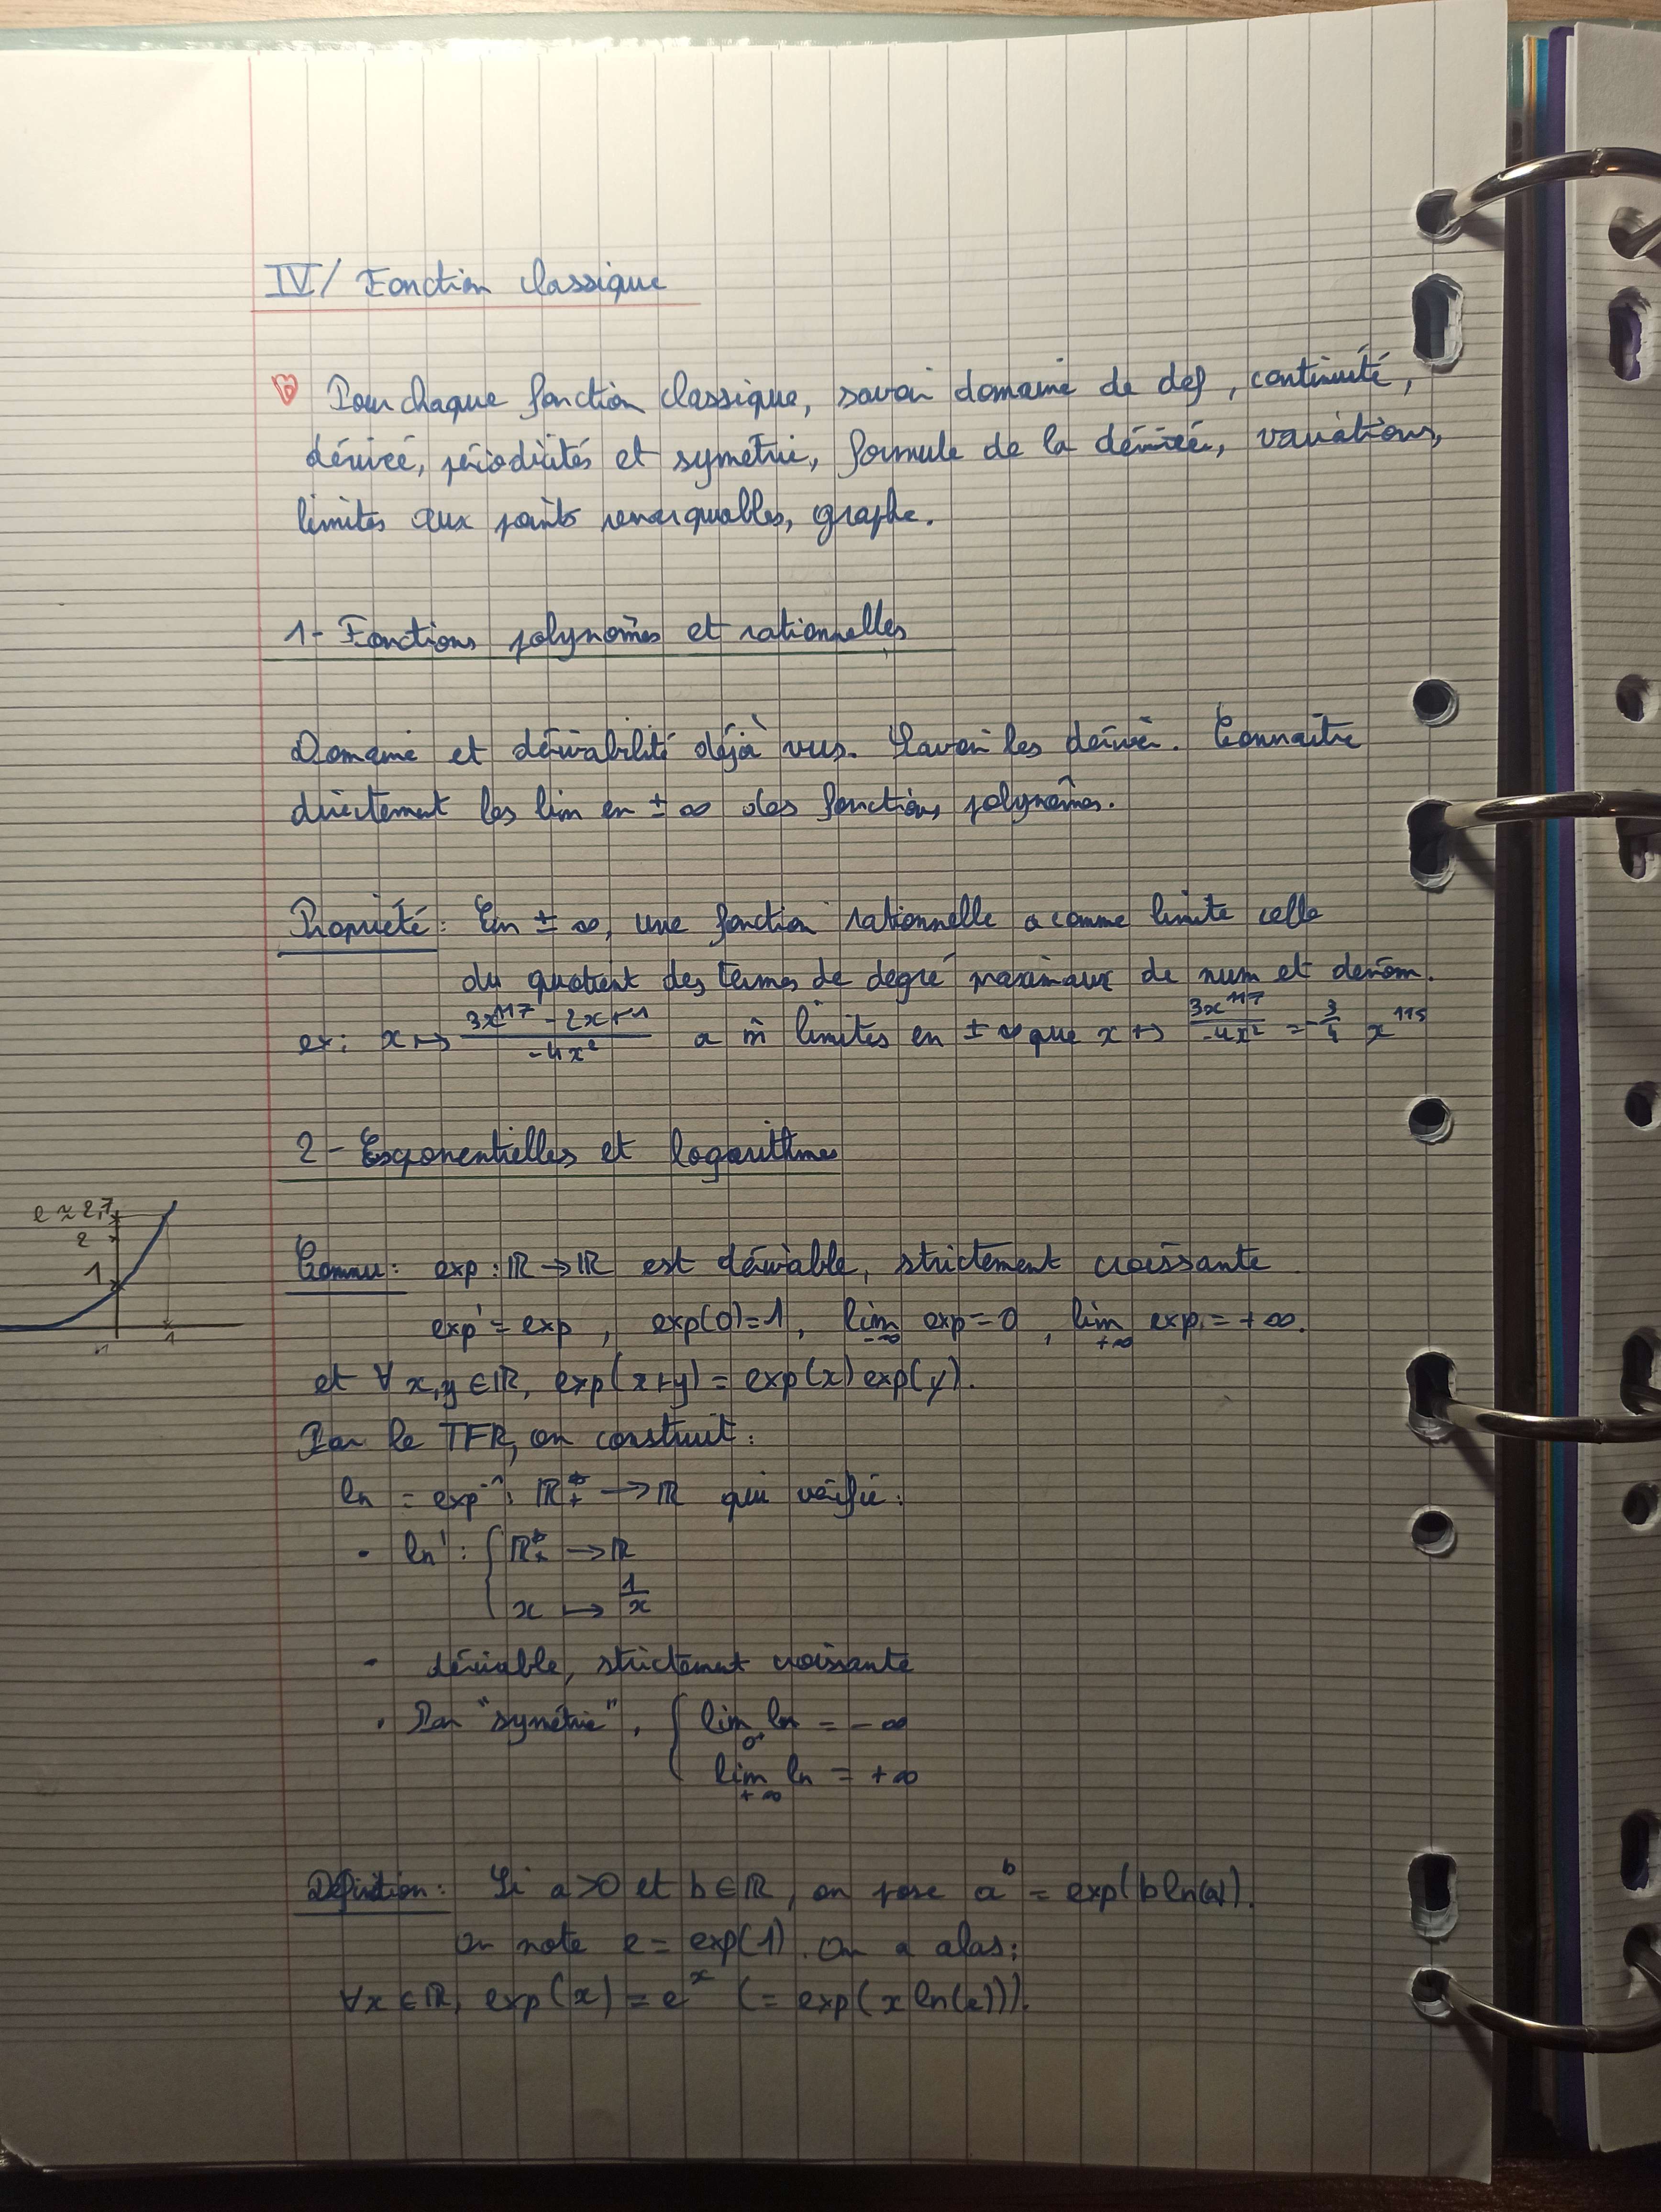 IV/ Fonction classique
Pour chaque fonction classique, savoir domaine de def, continuité,
dérivée, périodicités et symétrie, formule de la dérivée, variations,
limites aux points remarquables, graphe.
1- Fonctions polynômes et rationnelles
Domaine et dérivabilité déjà vus. Savoir les dériver. Connaître
directement les lim en ± ∞ des fonctions polynômes.
Propriété : En ± ∞, une fonction rationnelle a comme limite celle
du quotient des termes de degré maximaux de num et dénom.
ex : x ↦ (3x¹¹⁷ - 2x + 1)/(-4x²) a m̂ limites en ± ∞ que x ↦ 3x¹¹⁷/(-4x²) = -3/4 x¹¹⁵
2- Exponentielles et logarithmes
e ≈ 2,7
2
1
1
Connu : exp : ℝ → ℝ est dérivable, strictement croissante
exp' = exp, exp(0)=1, lim_{-∞} exp = 0, lim_{+∞} exp = +∞.
et ∀ x,y ∈ ℝ, exp(x+y) = exp(x) exp(y).
Par le TFR, on construit :
ln = exp⁻¹ : ℝ₊* → ℝ qui vérifie :
• ln' : { ℝ₊* → ℝ
x ↦ 1/x
• dérivable, strictement croissante
• Par "symétrie", { lim_{0⁺} ln = -∞
lim_{+∞} ln = +∞
Définition : Si a>0 et b ∈ ℝ, on pose a^b = exp(b ln(a)).
On note e = exp(1). On a alas :
∀x ∈ ℝ, exp(x) = e^x (= exp(x ln(e))).